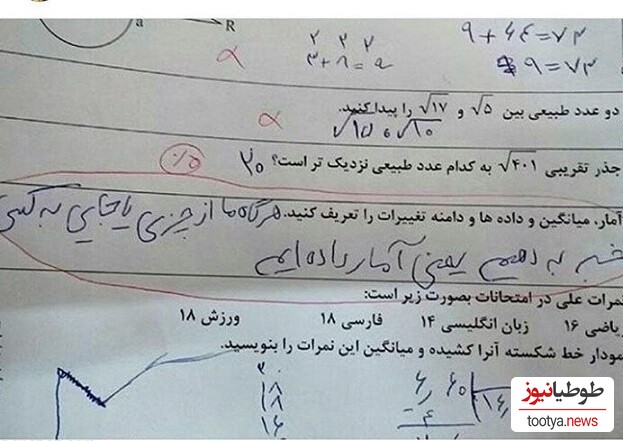 a
R
۹ + ۶۴ = ۷۳
۹ = ۷۳
۲ ۲ ۲
۳ + ۸ = ۹
دو عدد طبیعی بین √۵ و √۱۷ را پیدا کنید.
√۱۵ و √۱۰
جذر تقریبی √۴۰۱ به کدام عدد طبیعی نزدیک تر است؟ ۲۰
آمار، میانگین و داده ها و دامنه تغییرات را تعریف کنید. هرگاه ما از چیزی یا جایی به کسی
خبر به دهیم یعنی آمار داده ایم
نمرات علی در امتحانات بصورت زیر است:
ریاضی ۱۶ زبان انگلیسی ۱۴ فارسی ۱۸ ورزش ۱۸
نمودار خط شکسته آنرا کشیده و میانگین این نمرات را بنویسید.
۲۰
۱۸
۱۸
۱۶
طوطیانیوز
tootya.news